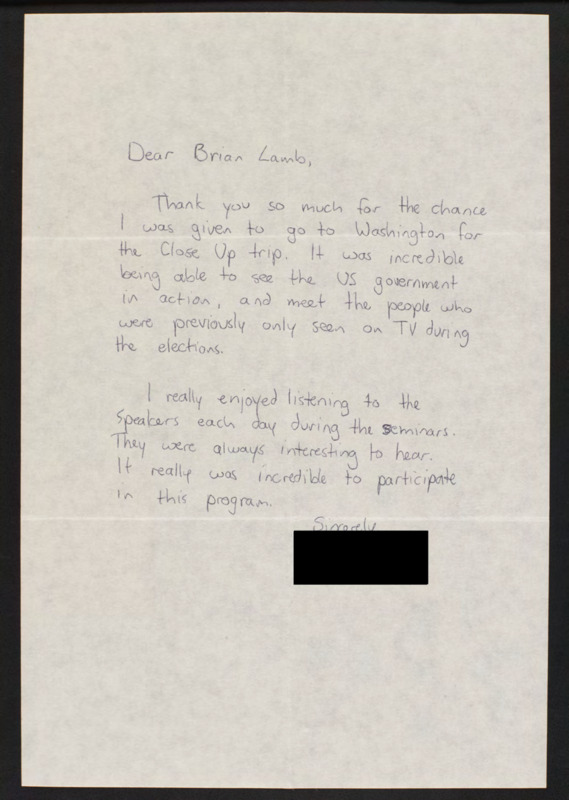 Dear Brian Lamb,
Thank you so much for the chance
I was given to go to Washington for
the Close Up trip. It was incredible
being able to see the US government
in action, and meet the people who
were previously only seen on TV during
the elections.
I really enjoyed listening to the
speakers each day during the seminars.
They were always interesting to hear.
It really was incredible to participate
in this program.
Sincerely